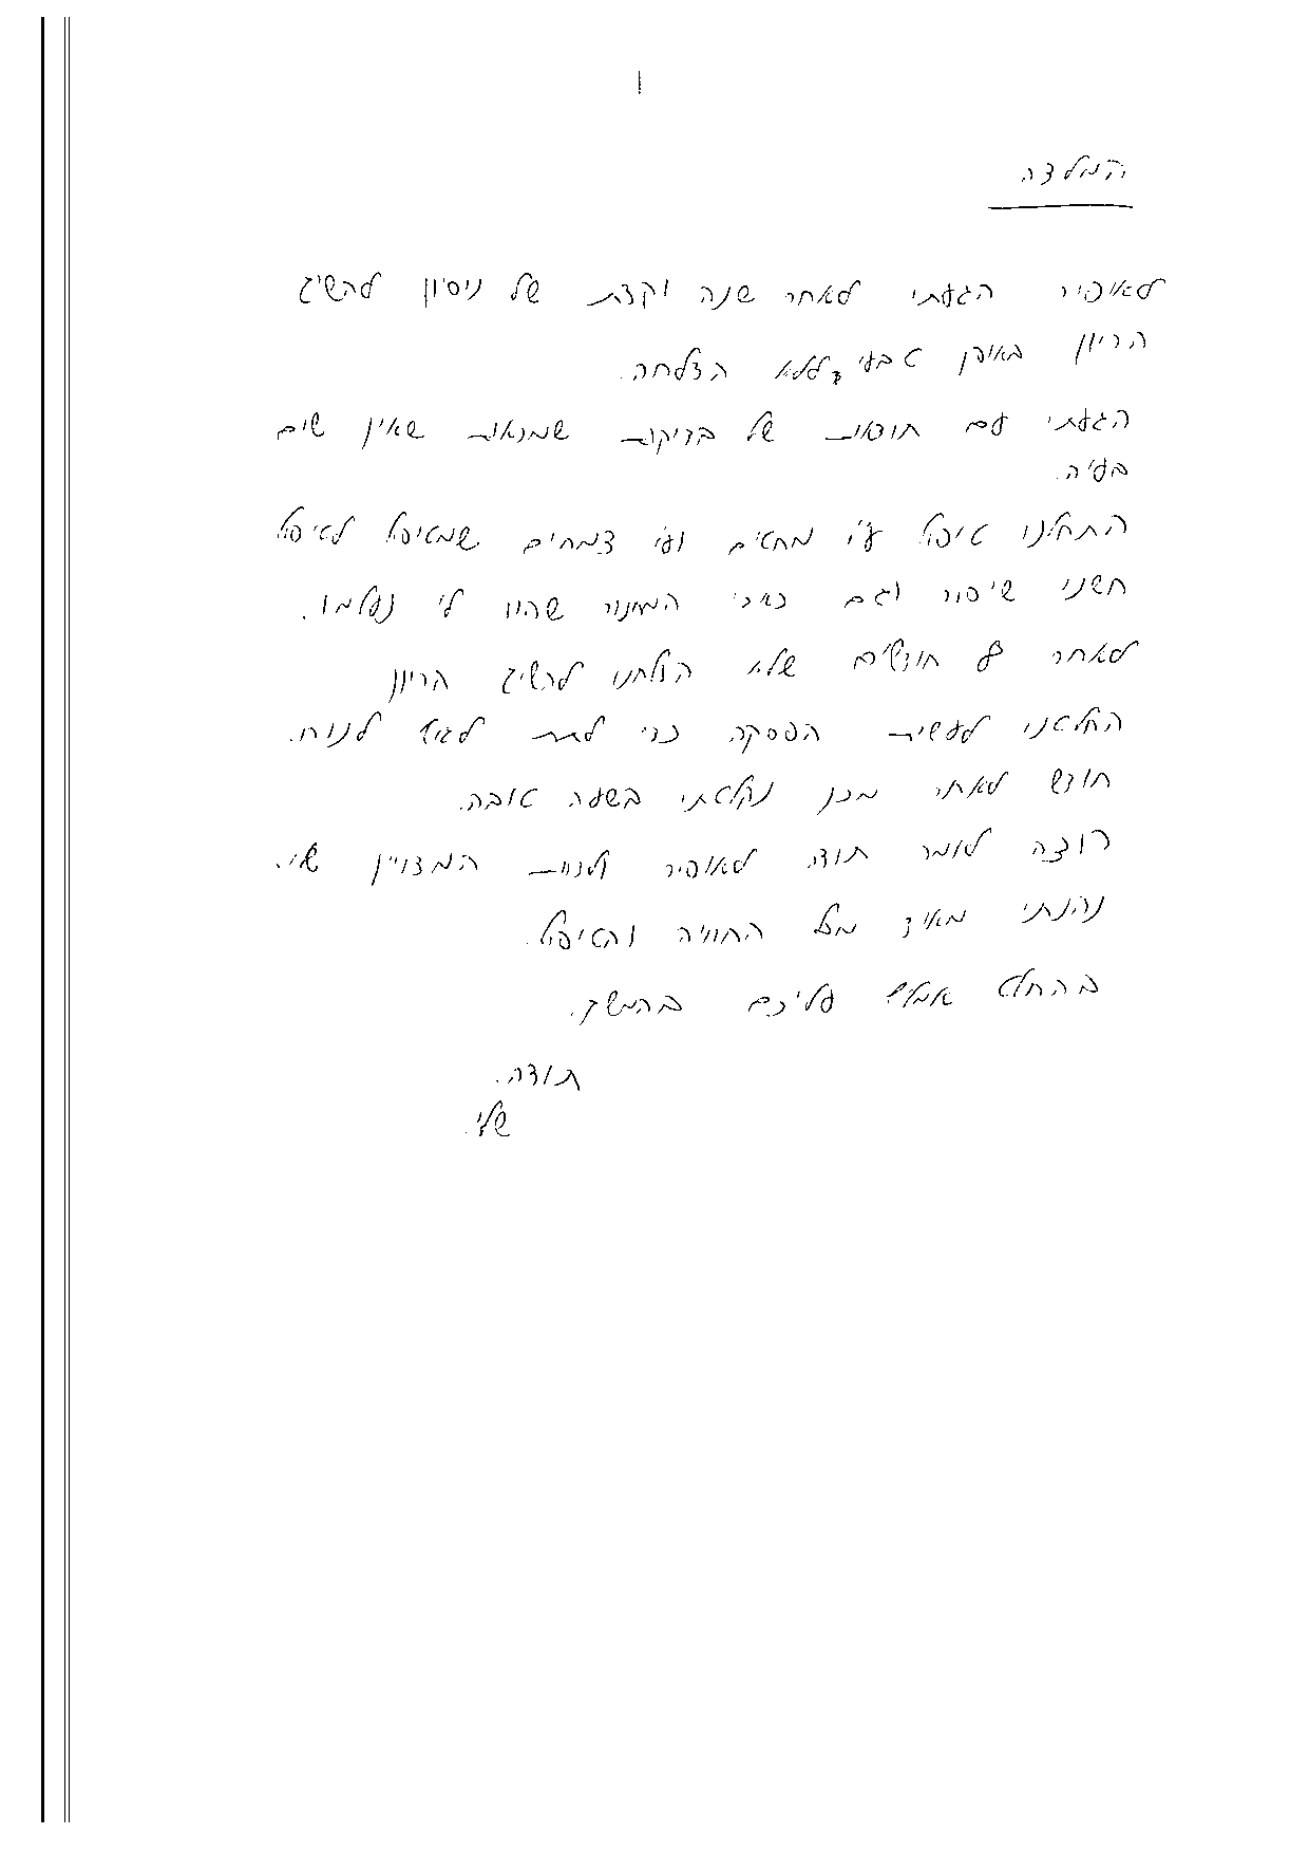 המלצה
לאופיר הגעתי לאחר שנה וקצת של ניסיון להשיג
הריון באופן טבעי ללא הצלחה.
הגעתי עם תוצאות של בדיקות שמראות שאין שום
בעיה.
התחלנו טיפול ע"י מחטים וע"י צמחים שמטיפול לטיפול
חשתי שיפור וגם כאבי המחזור שהיו לי נעלמו.
לאחר 8 חודשים שלא הצלחנו להשיג הריון
החלטנו לעשות הפסקה כדי לתת לגוף לנוח.
חודש לאחר מכן נקלטתי בשעה טובה.
רוצה לומר תודה לאופיר ולצוות המצויין שלו.
נהנתי מאוד מכל החוויה והטיפול.
בהחלט אמליץ עליכם בהמשך.
תודה.
שלי.